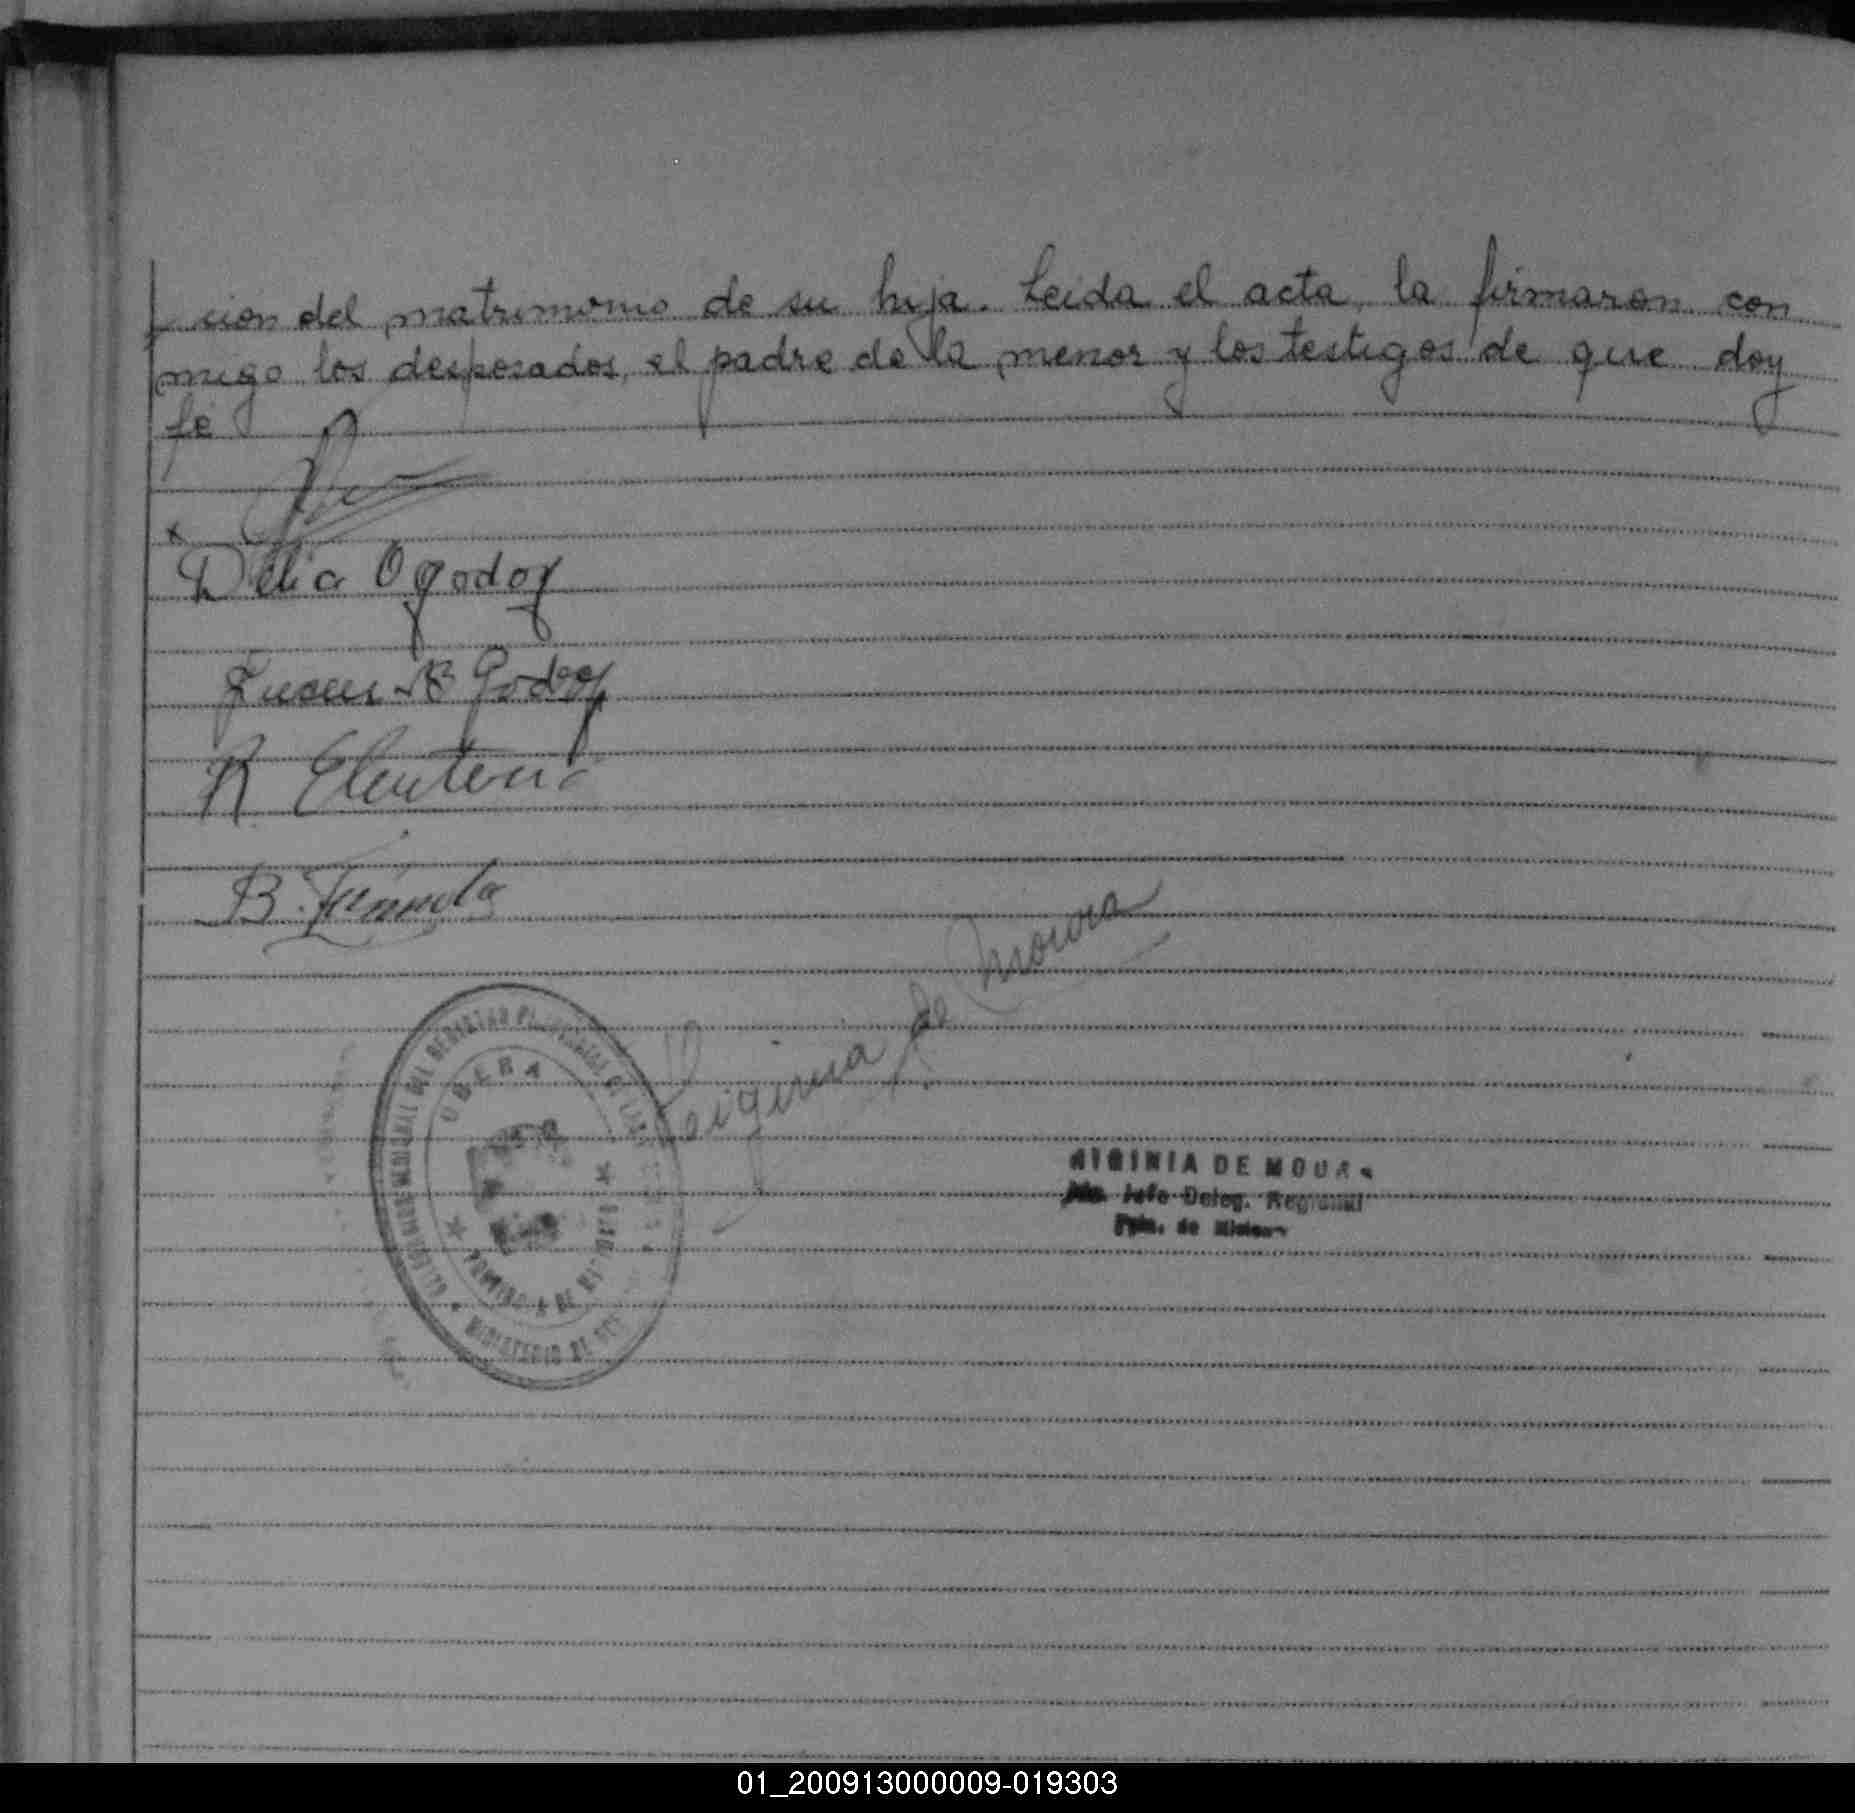 ción del matrimonio de su hija. Leida el acta, la firmaron con
migo los desposados, el padre de la menor y los testigos de que doy
fé
x
Delia O godoy
Lucas R Godoy
R Eleuterio
B.
Virginia de Moura
OBERA
MINISTERIO DE
VIRGINIA DE MOURA
Jefe Deleg. Regional
01_200913000009-019303